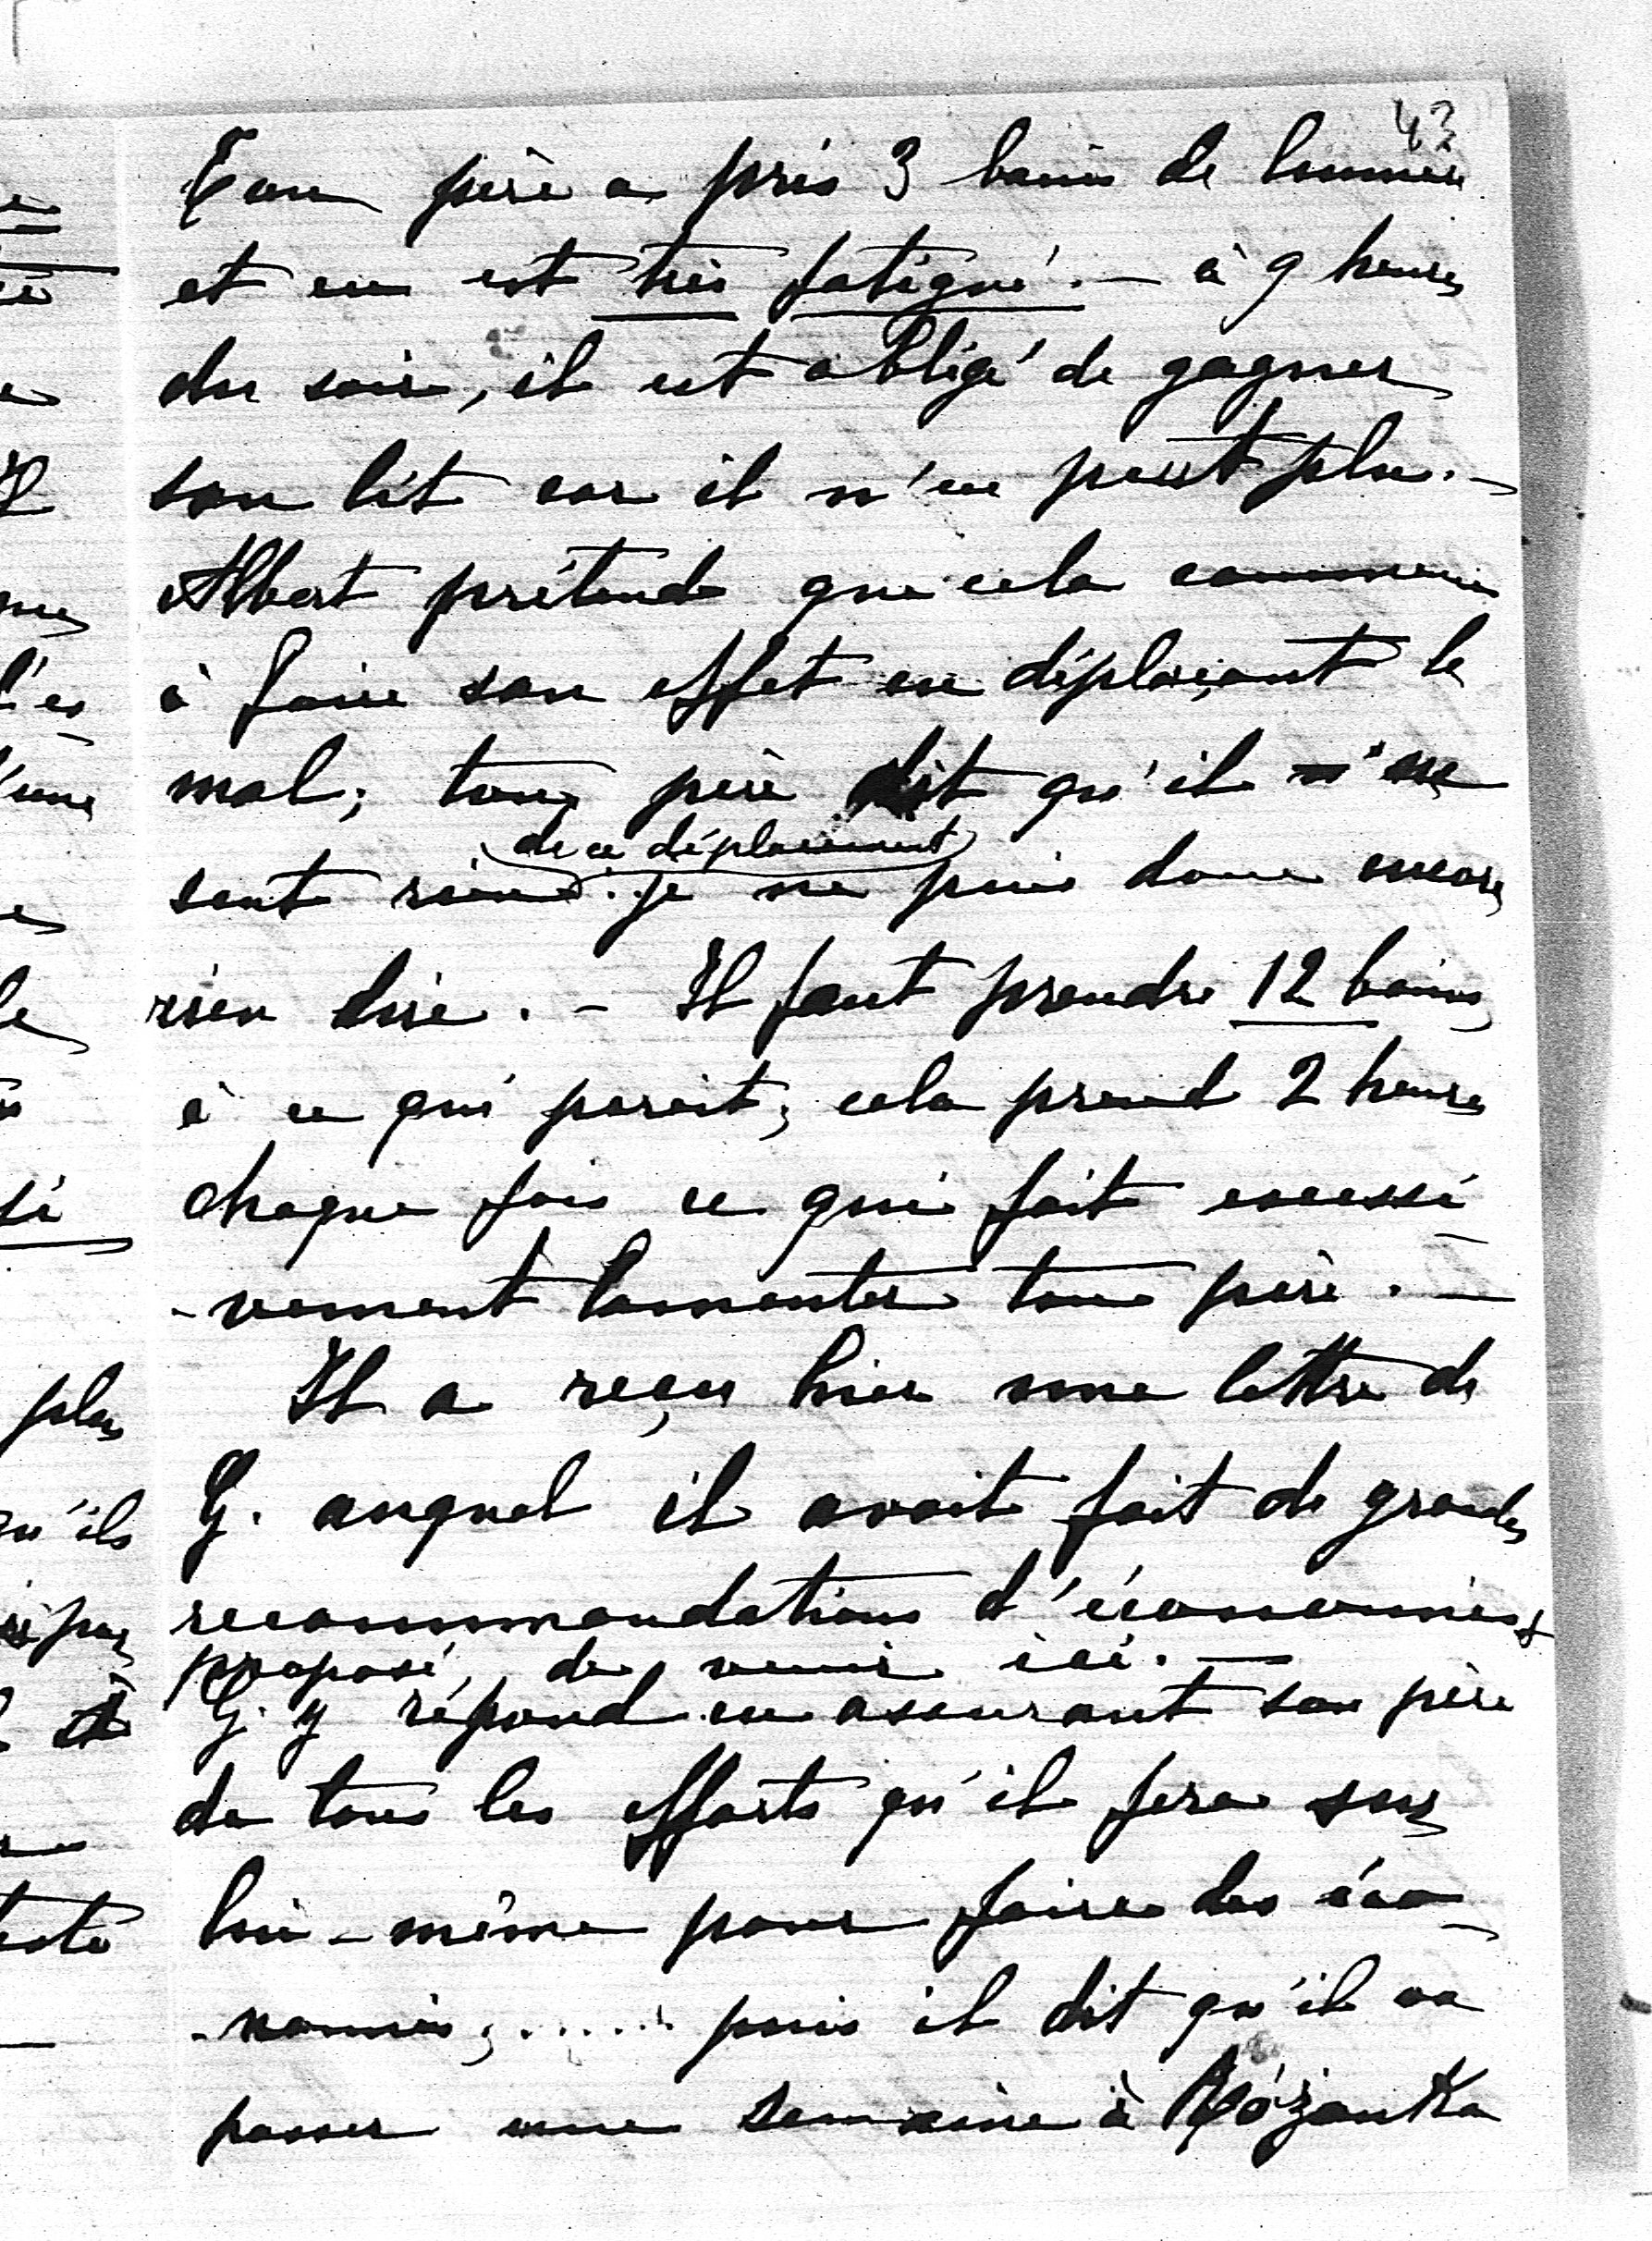 43
Ton père a pris 3 bains de lumière
et en est très fatigué. — à 9 heures
du soir, il est obligé de gagner
son lit car il n'en peut plus. —
Albert prétend que cela commence
à faire son effet en déplaçant le
mal; ton père dit qu'il n'en
de ce déplacement
sent rien. je ne puis donc encore
rien dire. — Il faut prendre 12 bains
à ce qui parait; cela prend 2 heures
chaque fois ce qui fait excessi-
-vement lamenter ton père. —
Il a reçu hier une lettre de
G. auquel il avait fait de grandes
recommandations d'économies &
proposé, de venir ici. —
G. y répond en assurant son père
de tous les efforts qu'il fera sur
lui-même pour faire des éco-
-nomies; ...... puis il dit qu'il va
passer une semaine à Różanka
plus
qu'ils
pas